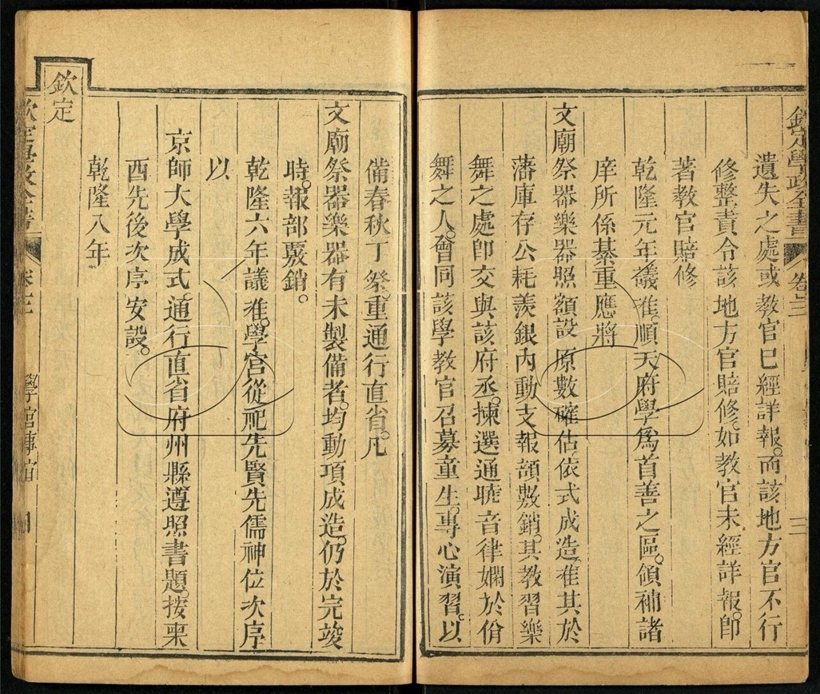 欽定學政全書
卷之三
三
遺失之處或教官已經詳報。而該地方官不行
修整責令該地方官賠修。如教官未經詳報。卽
著教官賠修
乾隆元年議准。順天府學爲首善之區。領袖諸
庠所係綦重應將
文廟祭器樂器照額設原數確估依式成造。在其於
藩庫存公耗羨銀內動支報部覈銷。其教習樂
舞之處卽交與該府丞。揀選通曉音律嫻於佾
舞之人。會同該學教官召募童生。專心演習。以
備春秋丁祭。重通行直省。凡
文廟祭器樂器有未製備者。均動項成造。仍於完竣
時。報部覈銷。
乾隆六年議准。學宮從祀先賢先儒神位次序
以
京師大學成式通行直省府州縣遵照書題。按東
西先後次序安設。
乾隆八年
欽定
欽定學政全書